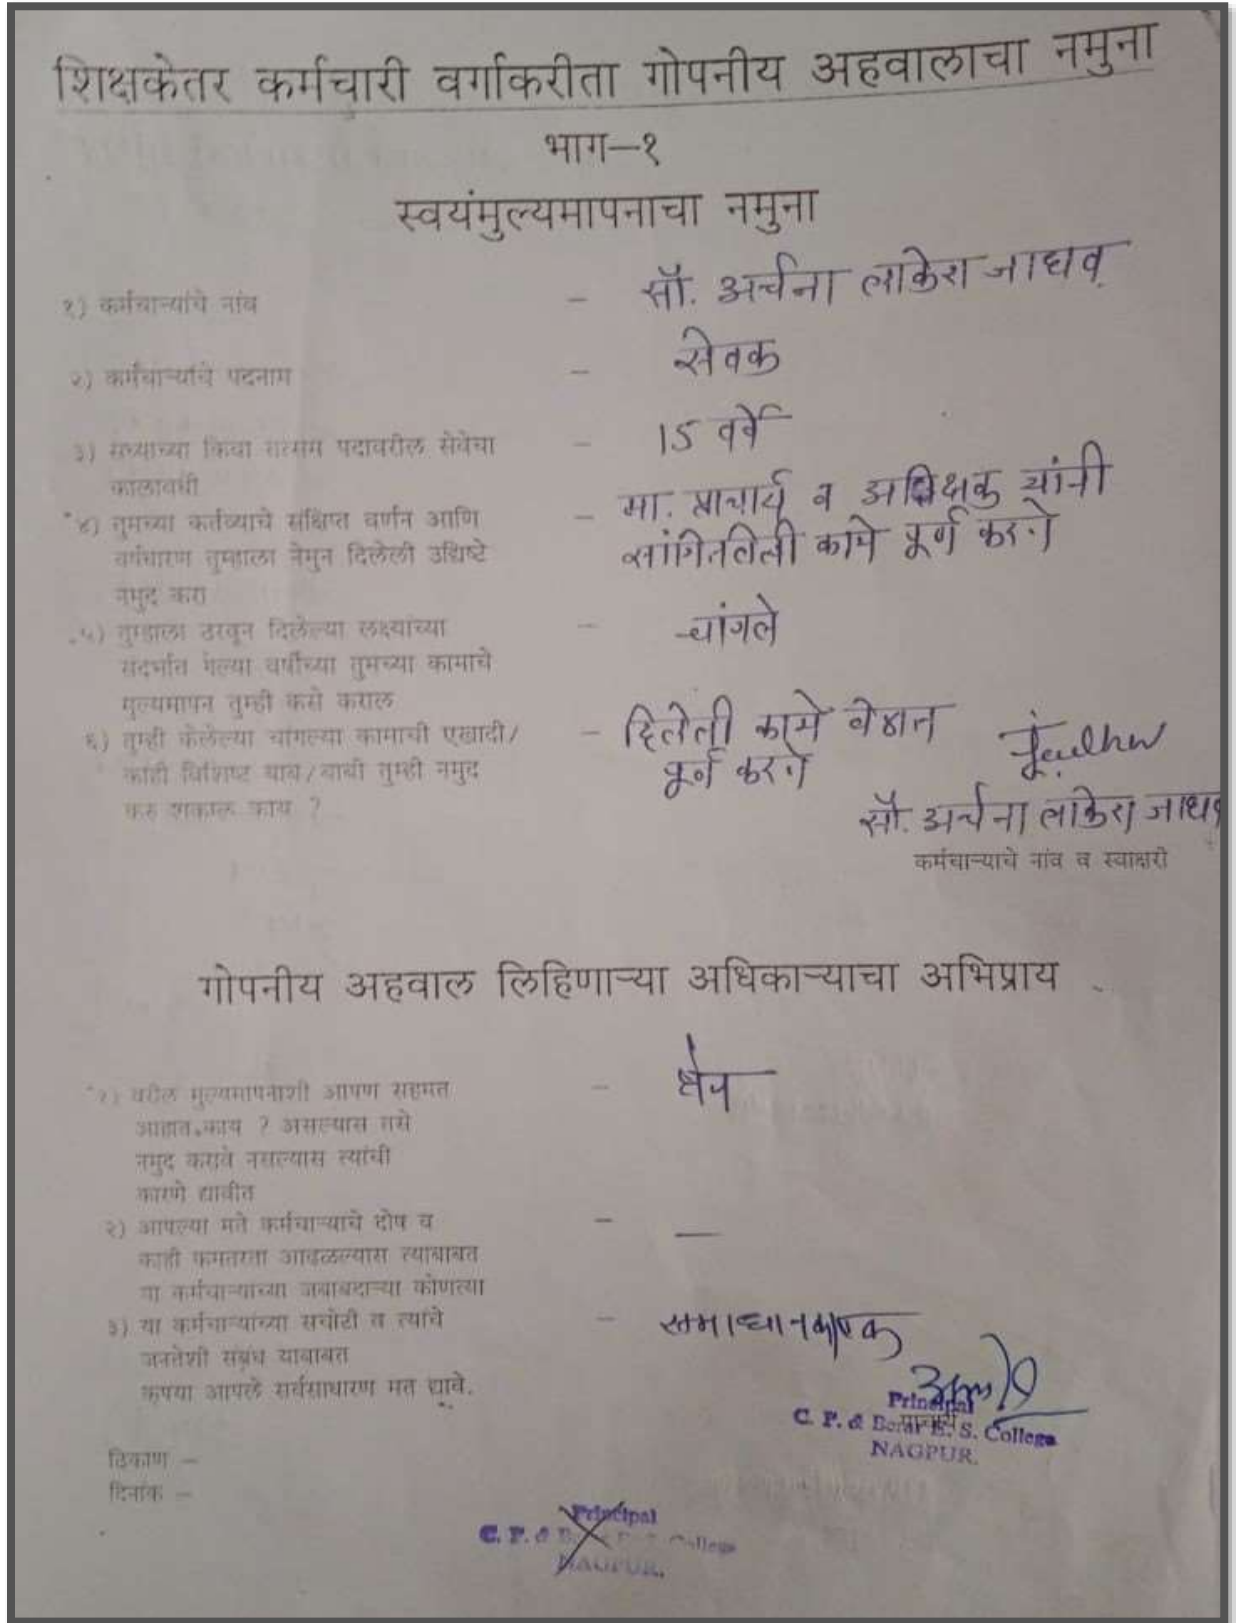 शिक्षकेतर कर्मचारी वर्गाकरीता गोपनीय अहवालाचा नमुना
भाग-१
स्वयंमुल्यमापनाचा नमुना
१) कर्मचाऱ्यांचे नांव - सौ. अर्चना लोकेश जाधव
२) कर्मचाऱ्यांचे पदनाम - सेवक
३) सध्याच्या किंवा तत्सम पदावरील सेवेचा - 15 वर्षे
कालावधी
४) तुमच्या कर्तव्याचे संक्षिप्त वर्णन आणि - मा. प्राचार्य व अधिक्षक यांनी
वर्षभरात तुम्हाला नेमुन दिलेली उद्यिष्टे सांगितलेली कामे पूर्ण करणे
नमुद करा
५) तुम्हाला ठरवून दिलेल्या लक्ष्यांच्या - चांगले
संदर्भात गेल्या वर्षीच्या तुमच्या कामाचे
मुल्यमापन तुम्ही कसे कराल
६) तुम्ही केलेल्या चांगल्या कामाची एखादी/ - दिलेली कामे वेळेत
काही विशिष्ट बाब/बाबी तुम्ही नमुद पूर्ण करणे
करु शकाल काय ?
सौ. अर्चना लोकेश जाधव
कर्मचाऱ्याचे नांव व स्वाक्षरी
गोपनीय अहवाल लिहिणाऱ्या अधिकाऱ्याचा अभिप्राय
१) वरील मुल्यमापनाशी आपण सहमत - होय
आहात काय ? असल्यास तसे
नमुद करावे नसल्यास त्यांची
कारणे द्यावीत
२) आपल्या मते कर्मचाऱ्याचे दोष व - —
काही कमतरता आढळल्यास त्याबाबत
या कर्मचाऱ्यांच्या जबाबदाऱ्या कोणत्या
३) या कर्मचाऱ्यांच्या सचोटी व त्यांचे - समाधानकारक
जनतेशी संबंध याबाबत
कृपया आपले सर्वसाधारण मत द्यावे.
Principal
प्राचार्य
C. P. & Berar E. S. College
NAGPUR.
ठिकाण -
दिनांक -
Principal
C. P. & College
NAGPUR.